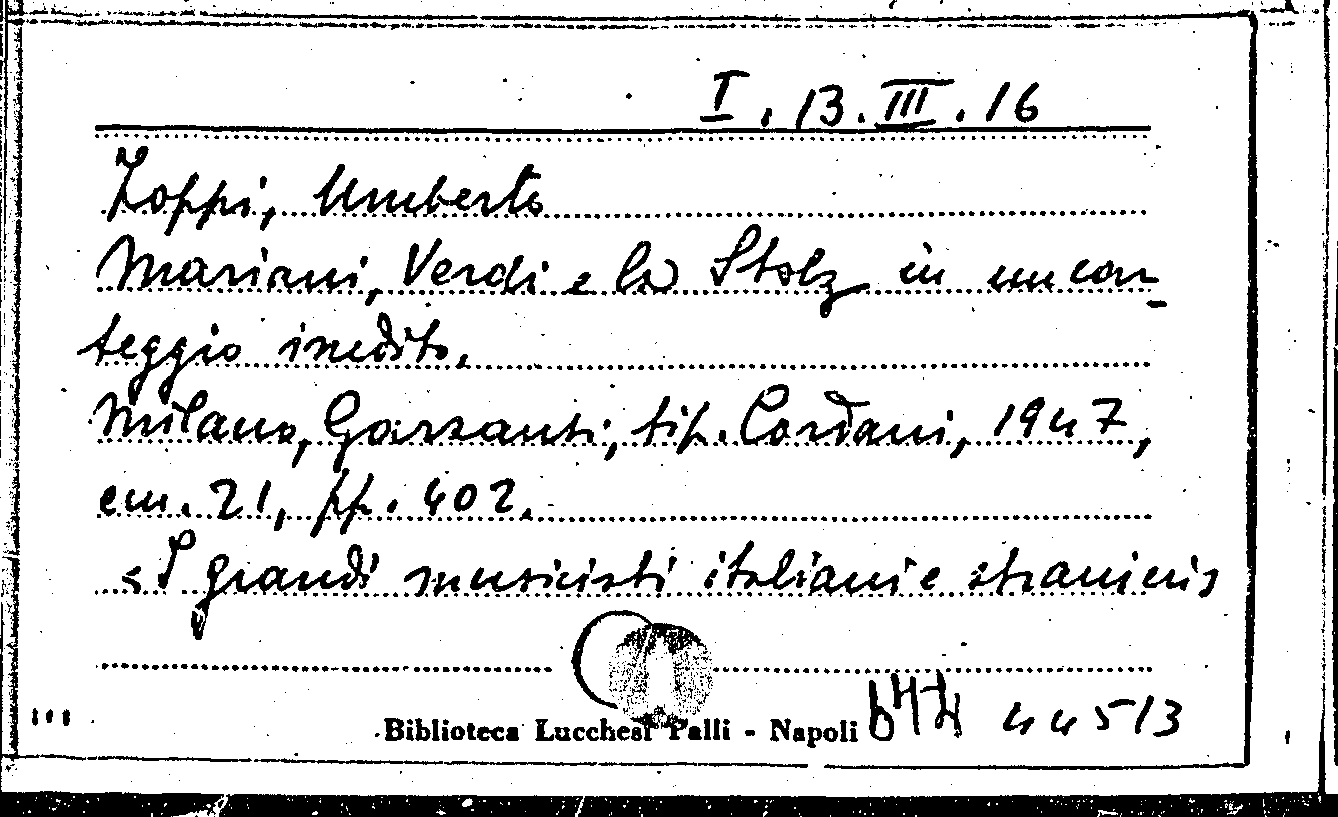 I. 13. III. 16
Zoppi, Umberto
Mariani, Verdi e la Stolz in un car-
teggio inedito.
Milano, Garzanti, tip. Cordani, 1947,
cm. 21, pp. 402.
«I grandi musicisti italiani e stranieri»
Biblioteca Lucchesi Palli - Napoli
44513